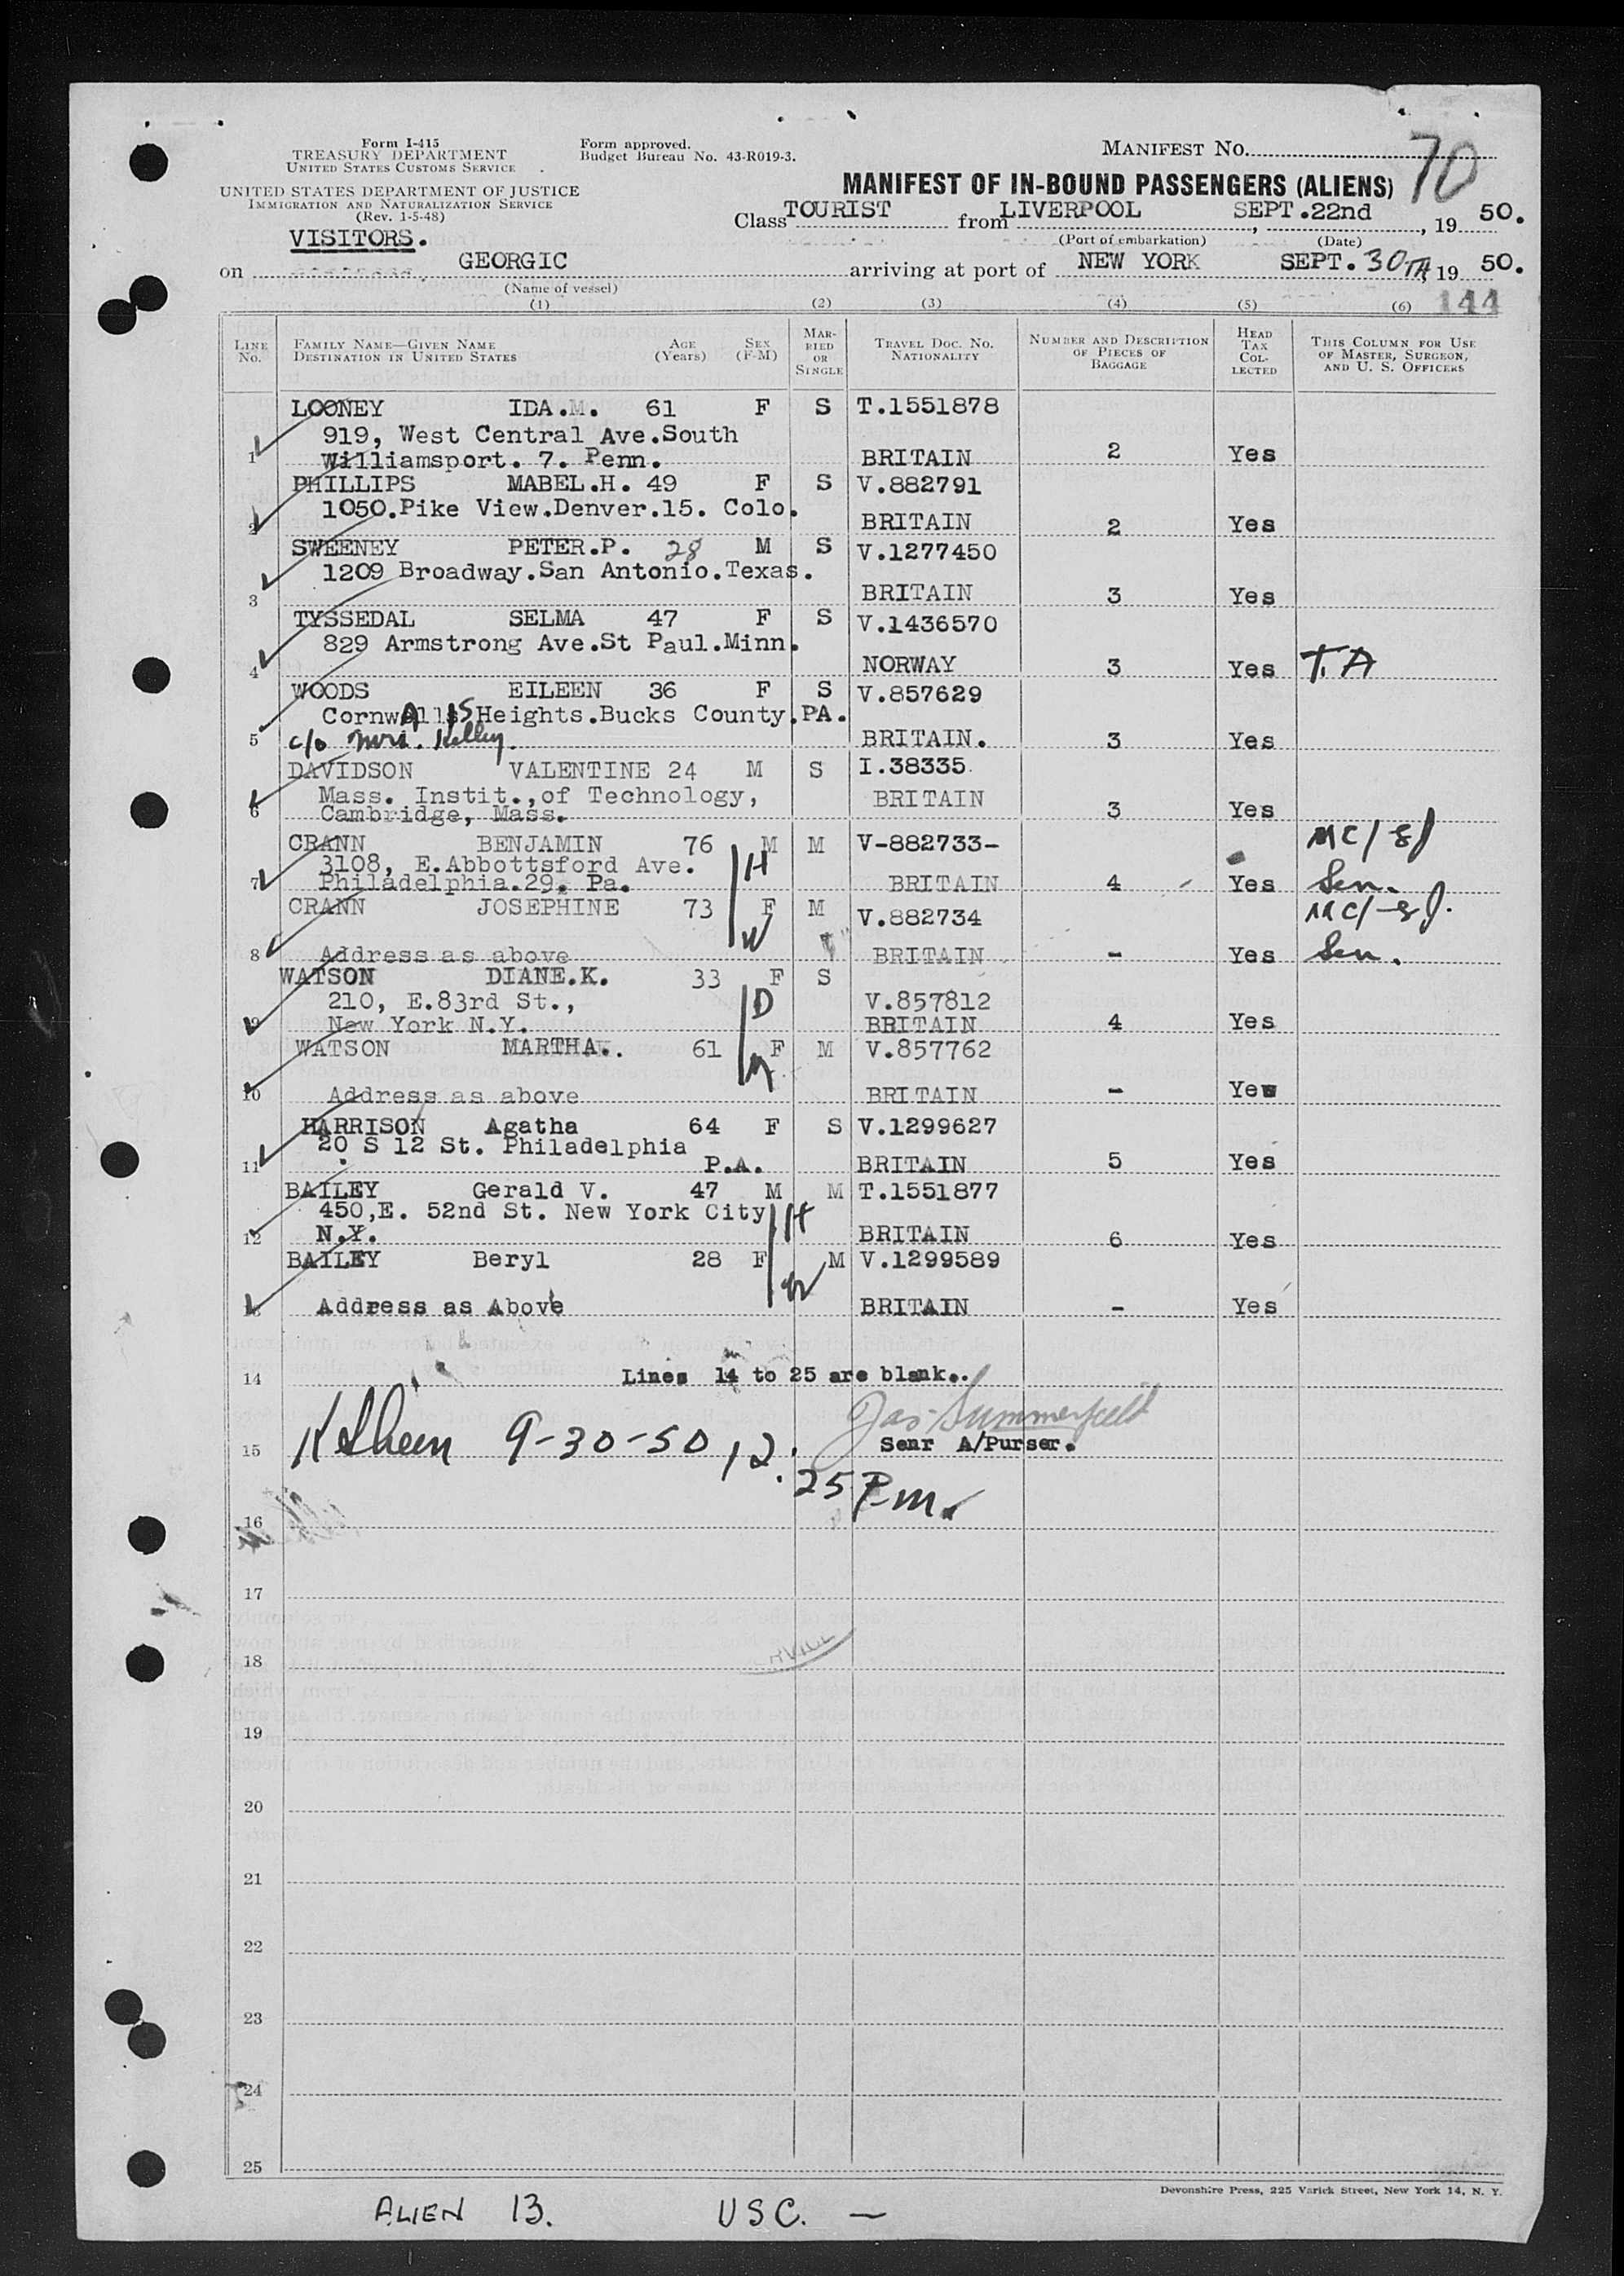 Form I-415
TREASURY DEPARTMENT
UNITED STATES CUSTOMS SERVICE
UNITED STATES DEPARTMENT OF JUSTICE
IMMIGRATION AND NATURALIZATION SERVICE
(Rev. 1-5-48)
Form approved.
Budget Bureau No. 43-R019-3.
MANIFEST NO. 70
MANIFEST OF IN-BOUND PASSENGERS (ALIENS)
Class TOURIST from LIVERPOOL, SEPT.22nd, 19 50.
(Port of embarkation) (Date)
VISITORS.
on GEORGIC arriving at port of NEW YORK SEPT. 30TH, 19 50.
(Name of vessel)
(1) (2) (3) (4) (5) (6) 144
LINE NO. FAMILY NAME—GIVEN NAME DESTINATION IN UNITED STATES AGE (Years) SEX (F-M) MARRIED OR SINGLE TRAVEL DOC. NO. NATIONALITY NUMBER AND DESCRIPTION OF PIECES OF BAGGAGE HEAD TAX COLLECTED THIS COLUMN FOR USE OF MASTER, SURGEON, AND U. S. OFFICERS
LOONEY IDA.M. 61 F S T.1551878
919, West Central Ave.South
1 Williamsport. 7. Penn. BRITAIN 2 Yes
PHILLIPS MABEL.H. 49 F S V.882791
1050.Pike View.Denver.15. Colo.
2 BRITAIN 2 Yes
SWEENEY PETER.P. 28 M S V.1277450
1209 Broadway.San Antonio.Texas.
3 BRITAIN 3 Yes
TYSSEDAL SELMA 47 F S V.1436570
829 Armstrong Ave.St Paul.Minn.
4 NORWAY 3 Yes T.A
WOODS EILEEN 36 F S V.857629
Cornwalls Heights.Bucks County.PA.
5 c/o Mrs. Kelley. BRITAIN. 3 Yes
DAVIDSON VALENTINE 24 M S I.38335.
Mass. Instit.,of Technology, BRITAIN
6 Cambridge, Mass. 3 Yes
CRANN BENJAMIN 76 M M V-882733-
3108, E.Abbottsford Ave. H
7 Philadelphia.29. Pa. BRITAIN 4 Yes Sen.
CRANN JOSEPHINE 73 F M V.882734
W
8 Address as above BRITAIN - Yes Sen.
WATSON DIANE.K. 33 F S
210, E.83rd St., D V.857812
9 New York N.Y. BRITAIN 4 Yes
WATSON MARTHA.. 61 F M V.857762
M
10 Address as above BRITAIN - Yes
HARRISON Agatha 64 F S V.1299627
20 S 12 St. Philadelphia
11 P.A. BRITAIN 5 Yes
BAILEY Gerald V. 47 M M T.1551877
450,E. 52nd St. New York City H
12 N.Y. BRITAIN 6 Yes
BAILEY Beryl 28 F M V.1299589
W
13 Address as Above BRITAIN - Yes
14 Lines 14 to 25 are blank..
Jas Summerfield
15 9-30-50 12.25 P.m. Senr A/Purser.
16
17
18
19
20
21
22
23
24
25
Devonshire Press, 225 Varick Street, New York 14, N. Y.
ALIEN 13. USC. —